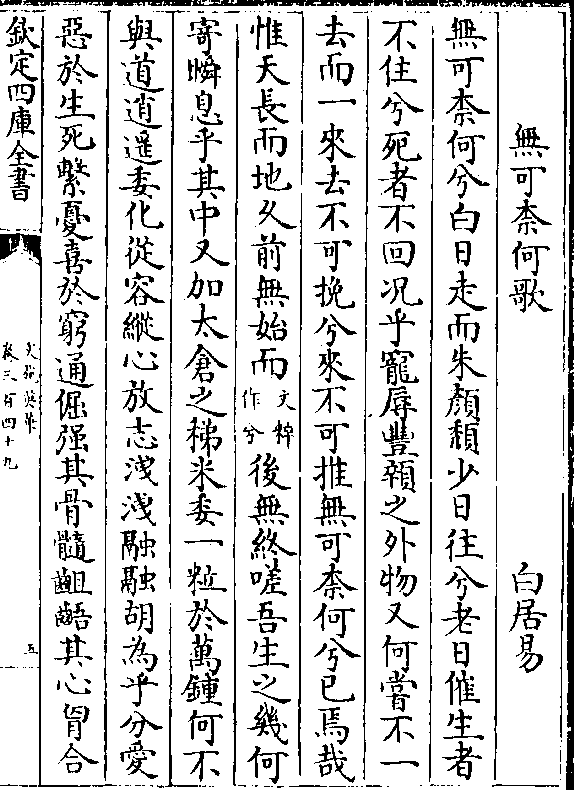 無可柰何歌 白居易
無可柰何兮白日走而朱顔頽少日往兮老日催生者
不住兮死者不回况乎寵辱豐顇之外物又何嘗不一
去而一來去不可挽兮來不可推無可柰何兮已焉哉
惟天長而地久前無始而文粹作兮後無終嗟吾生之幾何
寄瞬息乎其中又加太倉之稊米委一粒於萬鍾何不
與道逍遥委化從容縱心放志洩洩融融胡為乎分愛
惡於生死繫憂喜於窮通倔强其骨髓齟齬其心胷合
欽定四庫全書
文苑英華
卷三百四十九
五